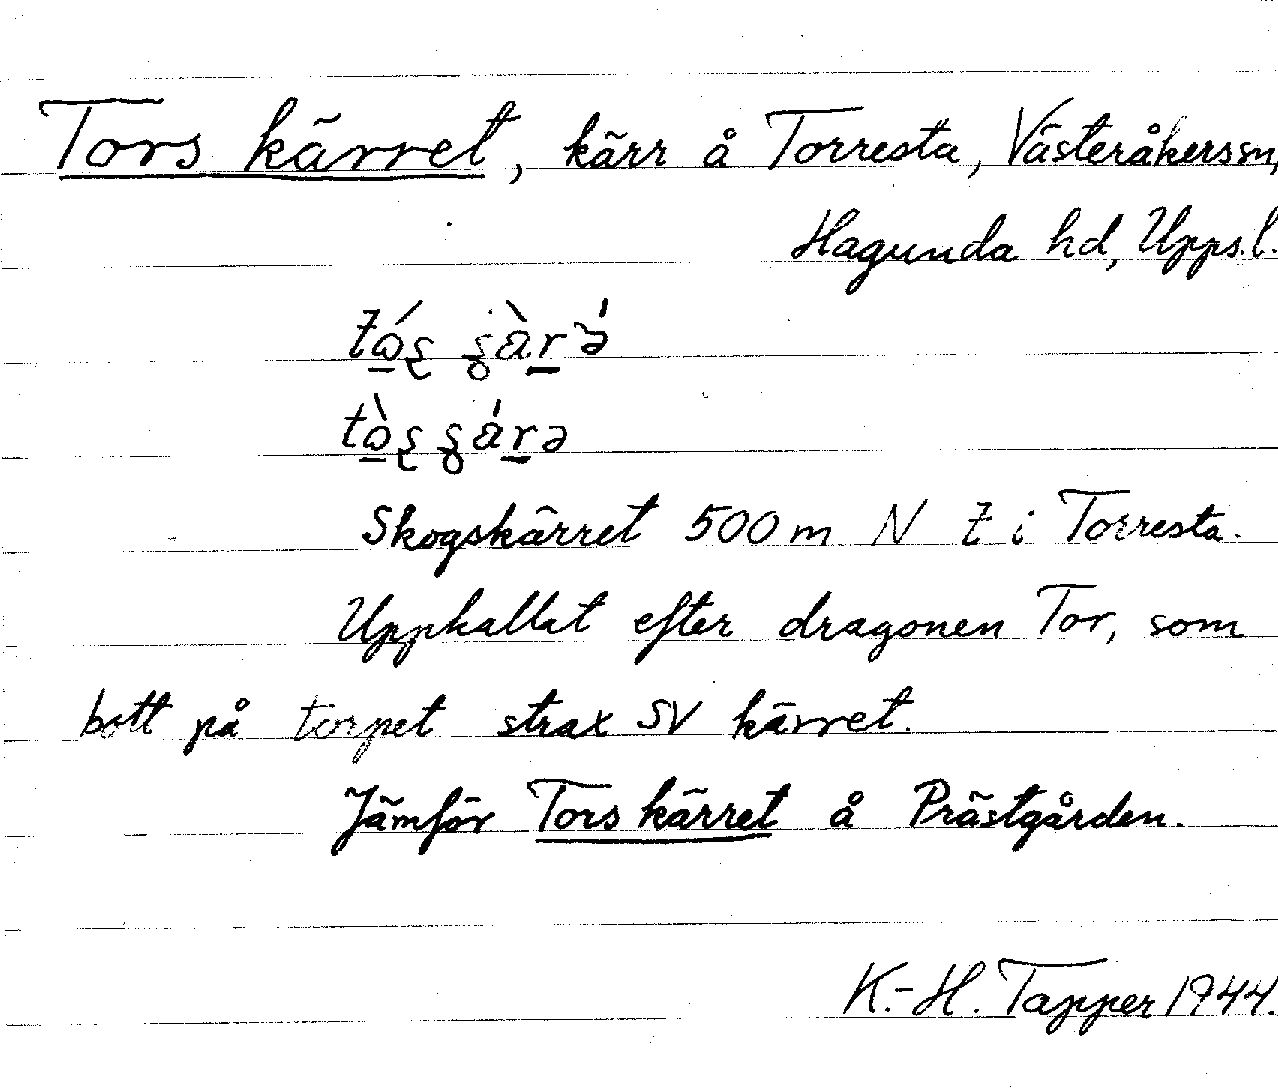 Tors kärret, kärr å Torresta, Västeråkerssn,
Hagunda hd, Upps.l.
Skogskärret 500 m N Z i Torresta.
Uppkallat efter dragonen Tor, som
bott på torpet strax SV kärret.
Jämför Tors kärret å Prästgården.
K.-H. Tapper 1944.